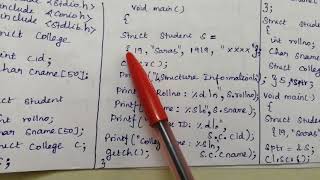 <stdio.h>
<conio.h>
<stdlib.h>
Struct College
int c.id;
Char cname[50];
Struct Student
int rollno;
Char sname[50];
Struct College C;
Void main()
{
Struct Student S =
{ 19, "Saras", 1919, "xxxx"};
Printf("Structure Information");
Printf("Rollno: %d\n", S.rollno);
Printf("College ID: %d\n",
S.c.cid);
Printf("College
S.c.cname);
getch();
Struct Student
{
int rollno
Char sname
} s,*ptr
Void main()
{
Struct Student
{19, "Saras"
*ptr = &
Clrscr()